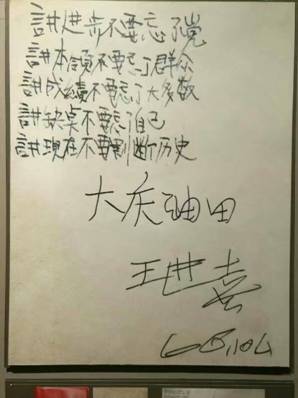 讲进步不要忘了党
讲本领不要忘了群众
讲成績不要忘了大多数
讲缺点不要忘了自己
讲现在不要割断历史
大庆油田
王进喜